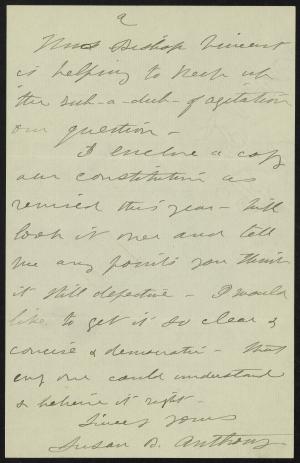 2
Bishop Vincent
is helping to keep up
the rub-a-dub- of agitation
our question -
I enclose a copy
our constitution as
revised this year - Will
look it over and tell
me any points you think
it still defective - I would
like to get it so clear &
concise & democratic - that
any one could understand
& believe it right -
Sincerely yours
Susan B. Anthony